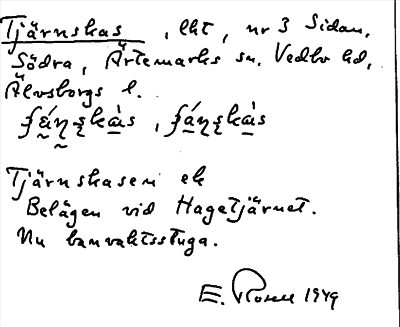 Tjärnskas, lht, nr 3 Sidan,
Södra, Ärtemarks sn. Vedbo hd,
Älvsborgs l.
Tjärnskasen ek
Belägen vid Hagetjärnet.
Nu banvaktsstuga.
E. Rosell 1949